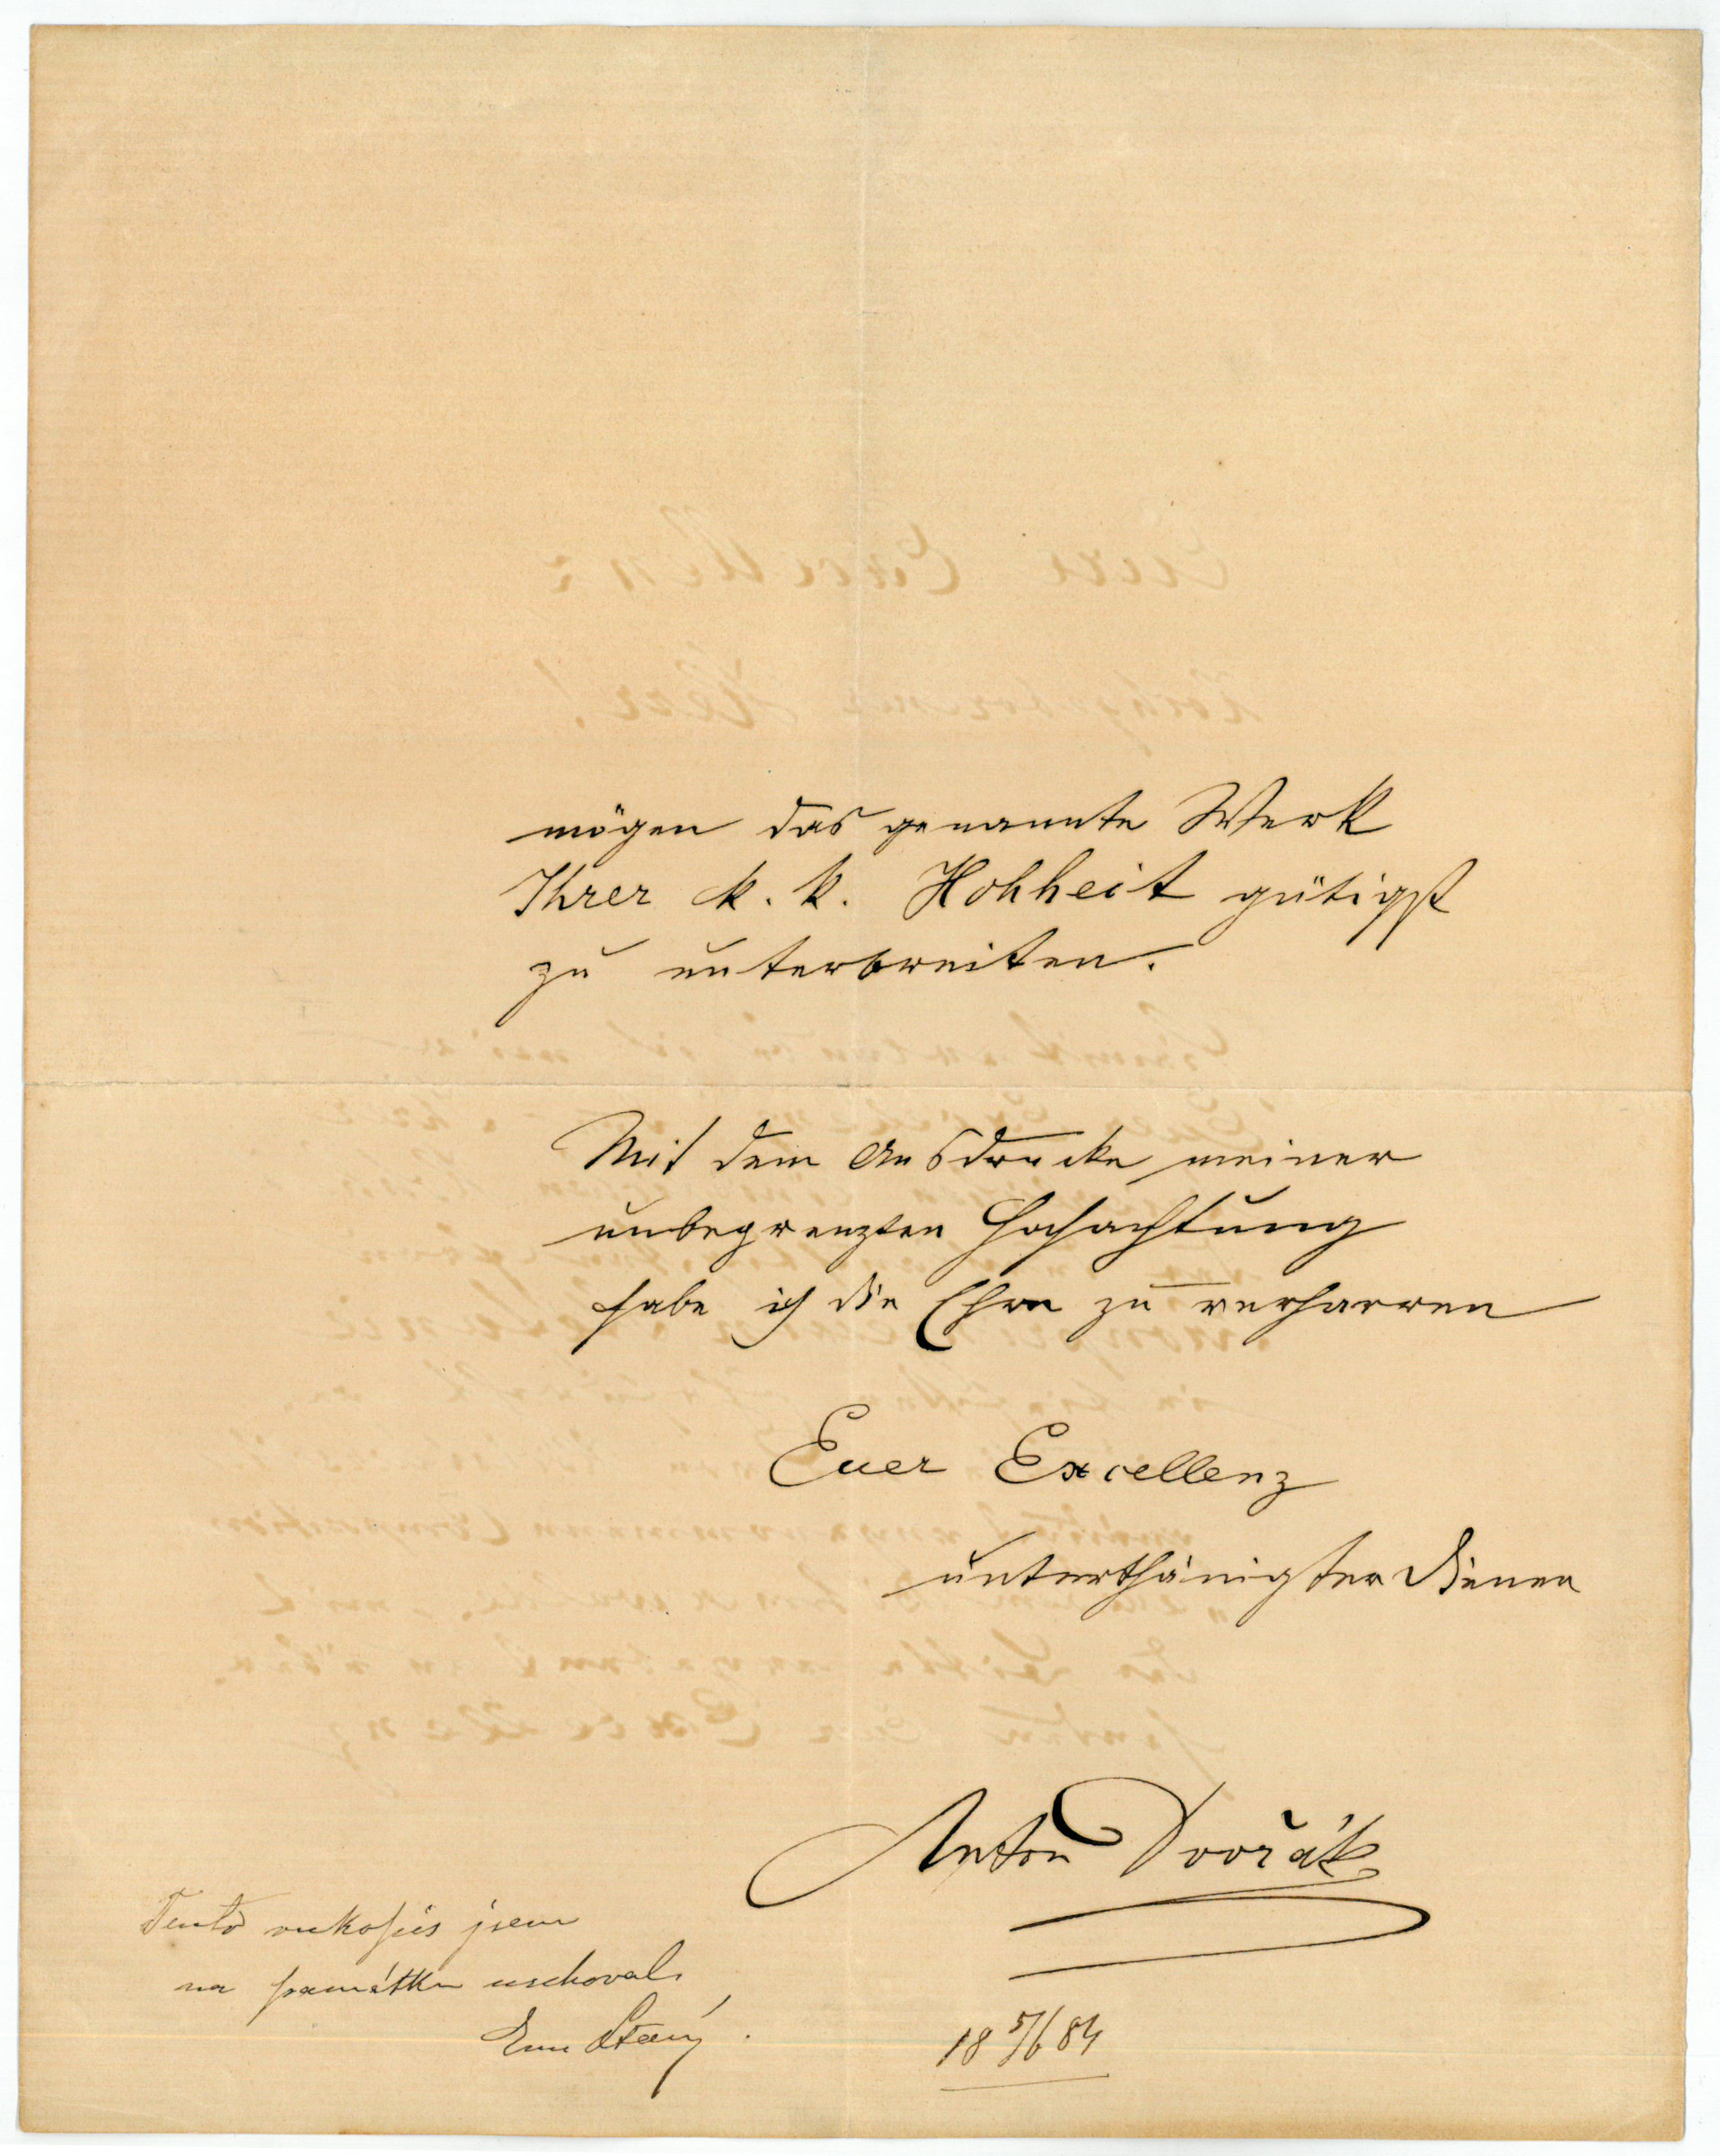 mögen das genannte Werk
Ihrer k. k. Hohheit gütigst
zu unterbreiten.
Mit dem Ausdrucke meiner
unbegrenzten Hochachtung
habe ich die Ehre zu verharren
Euer Excellenz
unterthänigster Diener
Anton Dvořák
18 5/6 84
Tento rukopis jsem
na památku uschoval.
Em Starý.